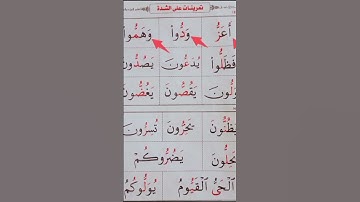 تمرينات على الشدة
أَعَزُّ وَدُّوا۟ وَهَمُّوا۟
فَظَلُّوا۟ يُدَعُّونَ يَصُدُّونَ
يَقُصُّونَ يَغُضُّونَ
يَظُنُّونَ تَجُرُّونَ تُسِرُّونَ
يَضُرُّوكُمْ
ٱلْحَىُّ ٱلْقَيُّومُ يُوَلُّوكُمُ